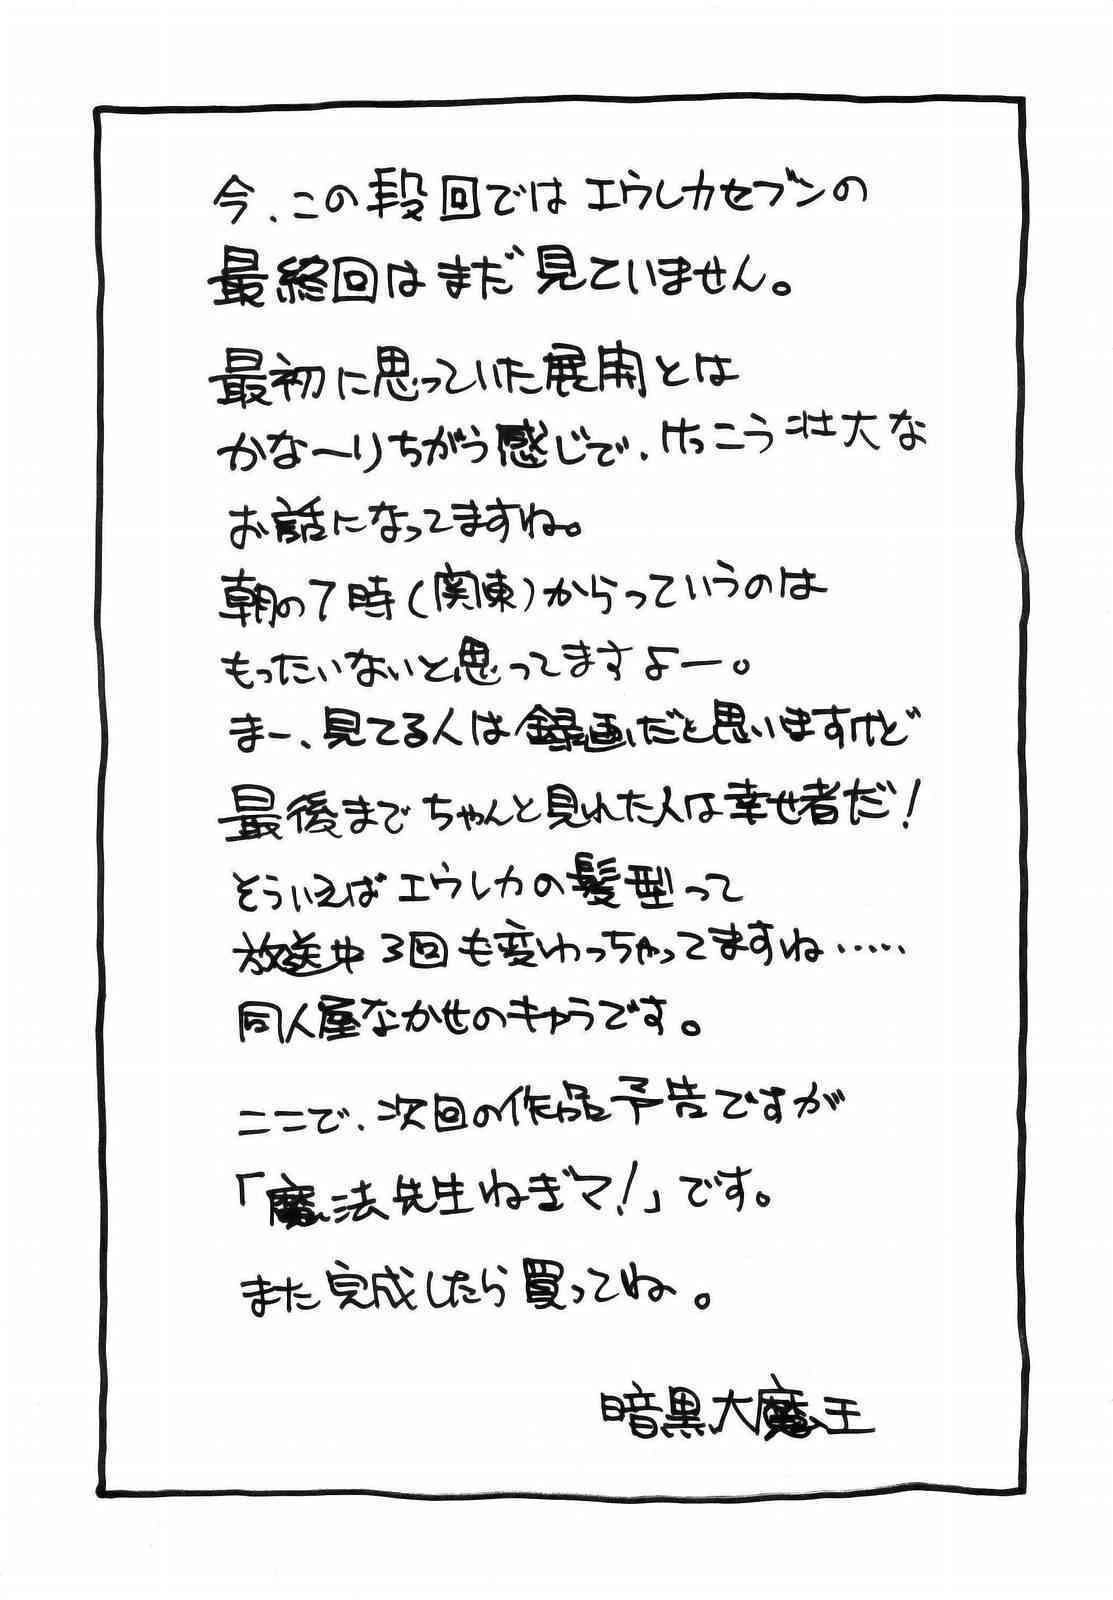 今、この段回では エウレカセブンの
最終回はまだ見ていません。
最初に思っていた展開とは
かな〜りちがう感じで、けっこう壮大な
お話になってますね。
朝の7時(関東)からっていうのは
もったいないと思ってますよー。
まー、見てる人は録画だと思いますけど
最後までちゃんと見れた人は幸せ者だ!
そういえばエウレカの髪型って
放送中3回も変わっちゃってますね……
同人屋なかせのキャラです。
ここで、次回の作品予告ですが
「魔法先生ねぎマ!」です。
また完成したら買ってね。
暗黒大魔王